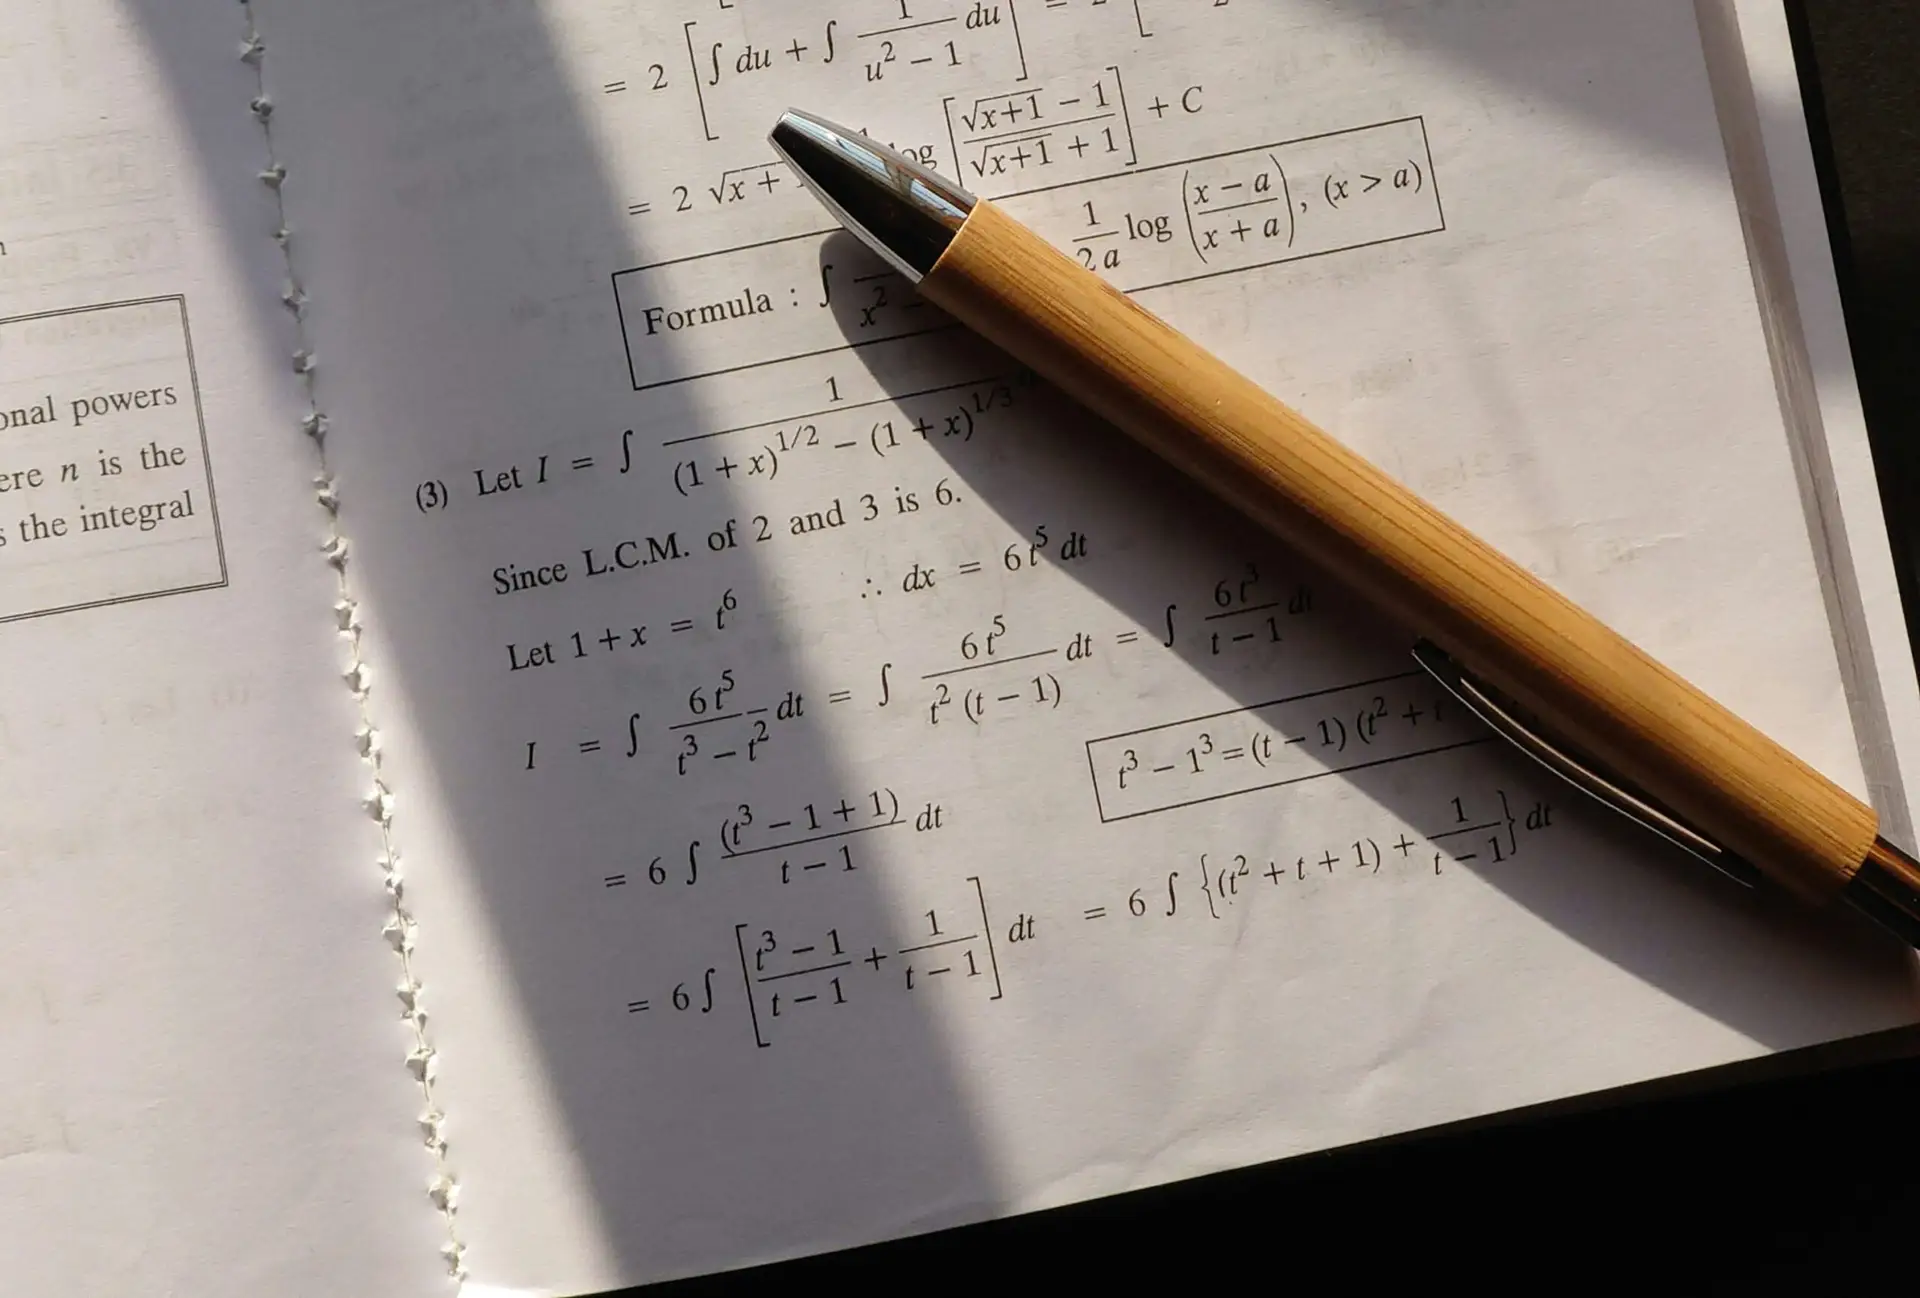 onal powers
ere n is the
s the integral
= 2 [∫ du + ∫ 1/(u² − 1) du] =
= 2 √x + log [(√x+1 − 1)/(√x+1 + 1)] + C
Formula : ∫ x² − 1/(2a) log ((x − a)/(x + a)), (x > a)
(3) Let I = ∫ 1/((1 + x)^1/2 − (1 + x)^1/3)
Since L.C.M. of 2 and 3 is 6.
Let 1 + x = t⁶ ∴ dx = 6 t⁵ dt
I = ∫ 6 t⁵/(t³ − t²) dt = ∫ 6 t⁵/(t² (t − 1)) dt = ∫ 6 t³/(t − 1) dt
t³ − 1³ = (t − 1) (t² + t
= 6 ∫ (t³ − 1 + 1)/(t − 1) dt
= 6 ∫ [(t³ − 1)/(t − 1) + 1/(t − 1)] dt = 6 ∫ {(t² + t + 1) + 1/(t − 1)} dt